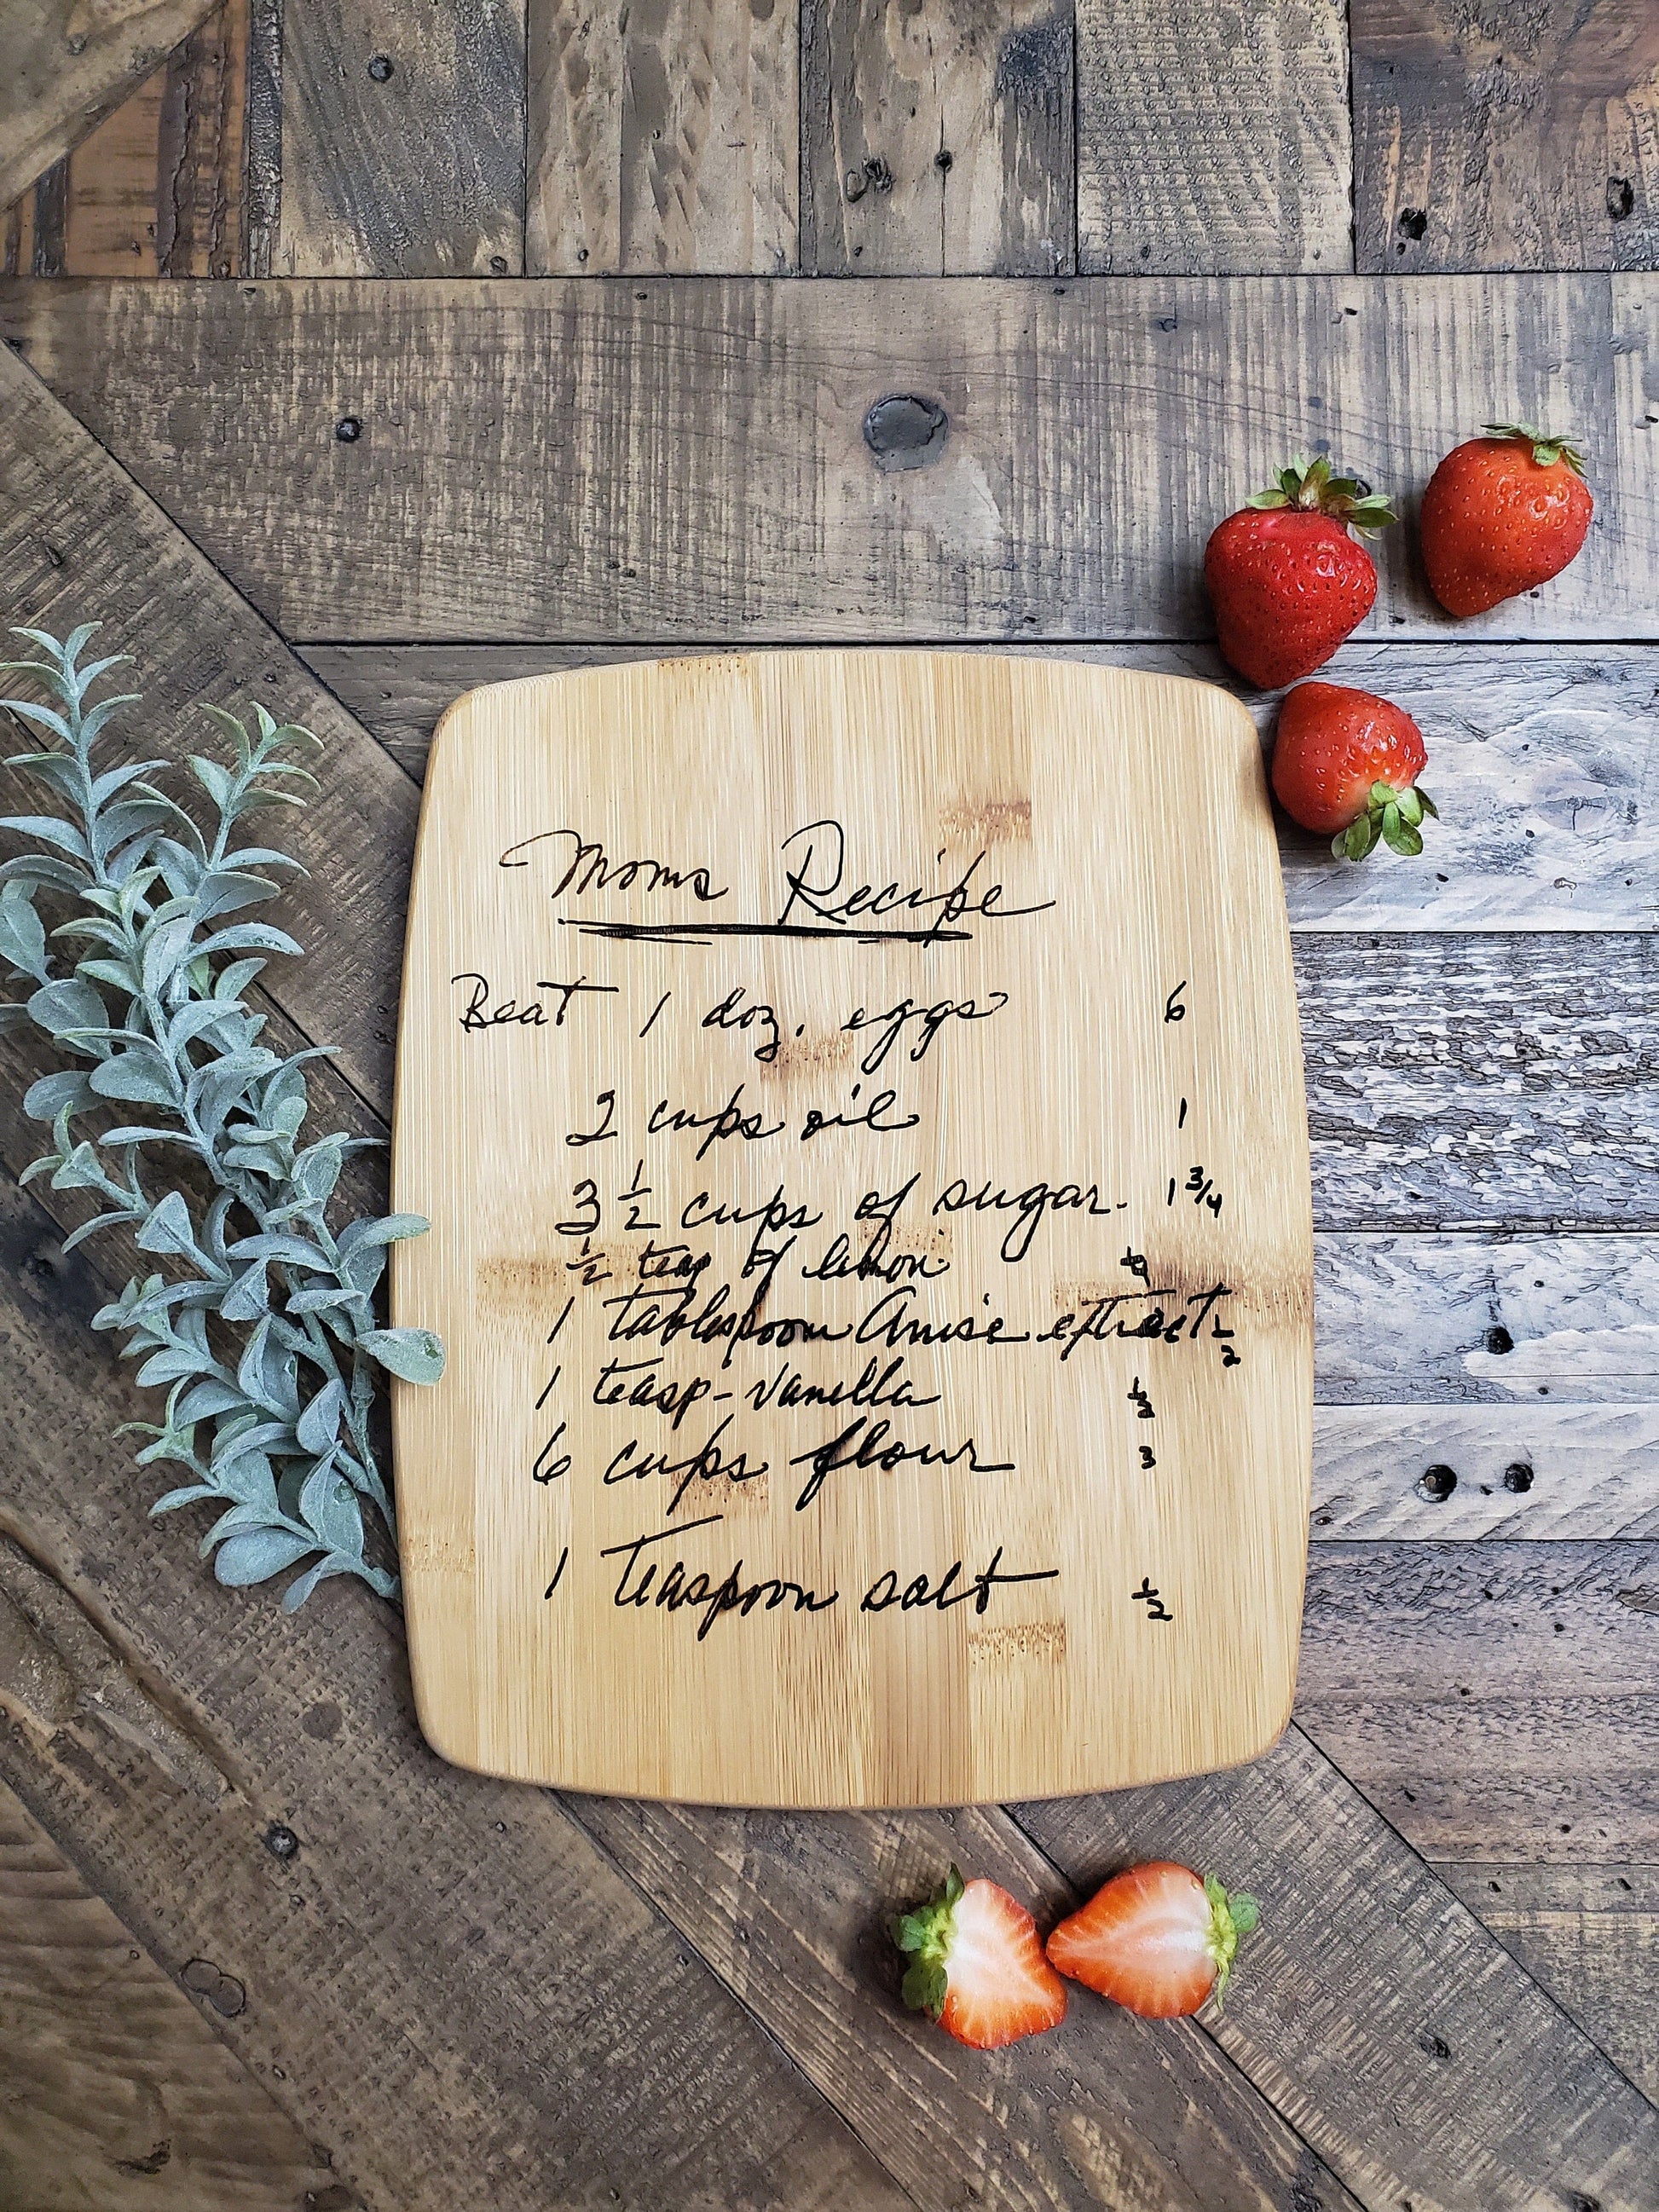 Moms Recipe
Beat 1 doz. eggs 6
2 cups oil 1
3 1/2 cups of sugar. 1 3/4
1/2 teasp of lemon 1/4
1 tablespoon Anise extract 1/2
1 teasp- vanilla 1/2
6 cups flour 3
1 Teaspoon salt 1/2